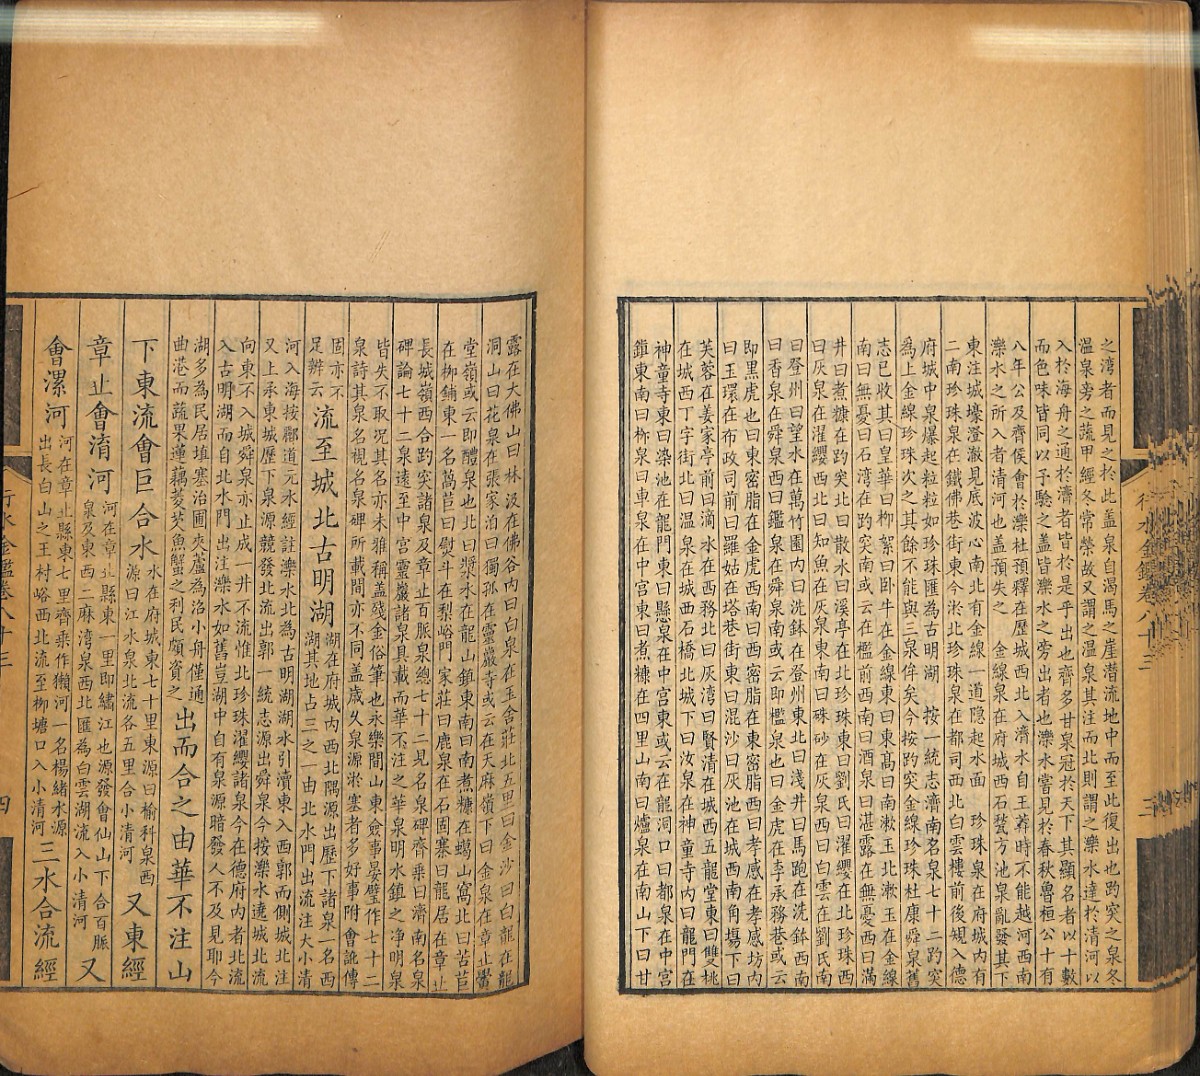 之灣者而見之於此蓋泉自渴馬之崖潛流地中而至此復出也趵突之泉冬
温泉旁之蔬甲經冬常榮故又謂之温泉其注而北則謂之濼水達於清河以
入於海舟之通於濟者皆於是乎出也齊多甘泉冠於天下其顯名者以十數
而色味皆同以予驗之蓋皆濼水之旁出者也濼水嘗見於春秋魯桓公十有
八年公及齊侯會於濼杜預釋在歷城西北入濟水自王莽時不能越河西南
濼水之所入者清河也蓋預失之 金線泉在府城西石甃方池泉亂發其下
東注城壕澄澈見底波心南北有金線一道隱起水面 珍珠泉在府城內有
二南珍珠泉在鐵佛巷街東今淤北珍珠泉在都司西北白雲樓前後䂓入德
府城中泉爆起粒粒如珍珠匯為古明湖 按一統志濟南名泉七十二趵突
為上金線珍珠次之其餘不能與三泉侔矣今按趵突金線珍珠杜康舜泉舊
志已收其曰皇華曰柳絮曰卧牛在金線東曰東高曰南漱玉北漱玉在金線
南曰無憂曰石灣在趵突南或云在檻前西南曰酒泉曰湛露在無憂西曰滿
井曰煮糠在趵突北曰散水曰溪亭在北珍珠東曰劉氏曰濯纓在北珍珠西
曰灰泉在濯纓西北曰知魚在灰泉東南曰硃砂在灰泉西曰白雲在劉氏南
曰登州曰望水在萬竹園內曰洗鉢在登州東北曰淺井曰馬跑在洗鉢西南
曰香泉在舜泉西曰鑑泉在舜泉南或云即檻泉也曰金虎在李承務巷或云
即黑虎也曰東密脂在金虎西南曰西密脂在東密脂西曰孝感在孝感坊內
曰玉環在布政司前曰羅姑在塔巷街東曰混沙曰灰池在城西南角塲下曰
芙蓉在姜家亭前曰滴水在西務北曰灰灣曰賢清在城西五龍堂東曰雙桃
在城西丁字街北曰温泉在城西石橋北城下曰汝泉在神童寺內曰龍門在
神童寺東曰染池在龍門東曰懸泉在中宮東或云在龍洞口曰都泉在中宮
鎮東南曰柹泉曰車泉在中宮東曰煮糠在四里山南曰爐泉在南山下曰甘
露在大佛山曰林汲在佛谷內曰白泉在玉舍莊北五里曰金沙曰白龍在龍
洞山曰花泉在張家泊曰獨孤在靈巖寺或云在天麻嶺下曰金泉在章丘黌
堂嶺或云即醴泉也曰漿水在龍山鎮東南曰南煮糠在蠍山窩北曰苦苣
在柳鋪東一名萵苣曰熨斗在梨峪門家莊曰鹿泉在石固寨曰龍居在章丘
長城嶺西合趵突諸泉及章丘百脈泉總七十二見名泉碑齊乗曰濟南名泉
碑論七十二泉遠至中宮靈巖諸泉具載而華不注之華泉明水鎮之净明泉
皆失不取况其名亦未雅稱蓋殘金俗筆也永樂間山東僉事晏璧作七十二
泉詩其泉名視名泉碑所載間亦不同蓋歲久泉源淤塞者多好事附會訛傳
固亦不
足辨云 流至城北古明湖 湖在府城內西北隅源出歷下諸泉一名西
湖其地占三之一由北水門出流注大小清
河入海按酈道元水經註濼水北為古明湖湖水引瀆東入西郭而側城北注
又上承東城歷下泉源競發北流出郭一統志源出舜泉今按濼水遶城北流
向東不入城舜泉亦止成一井不流惟北珍珠濯纓諸泉今在德府內者北流
入古明湖而自北水門出注濼水如舊豈湖中自有泉源暗發人不及見耶今
湖多為民居填塞治圃夾蘆為洺小舟僅通
曲港而蔬果蓮藕菱芡魚蟹之利民頗資之 出而合之由華不注山
下東流會巨合水 水在府城東七十里東源曰榆科泉西
源曰江水泉北流各五里合小清河 又東經
章丘會淯河 河在章丘縣東一里即繡江也源發會仙山下合百脈
泉及東西二麻灣泉西北匯為白雲湖流入小清河 又
會漯河 河在章丘縣東七里齊乗作獺河一名楊緒水源
出長白山之王村峪西北流至柳塘口入小清河 三水合流經
行水金鑑卷八十三
三
行水金鑑卷八十三
四